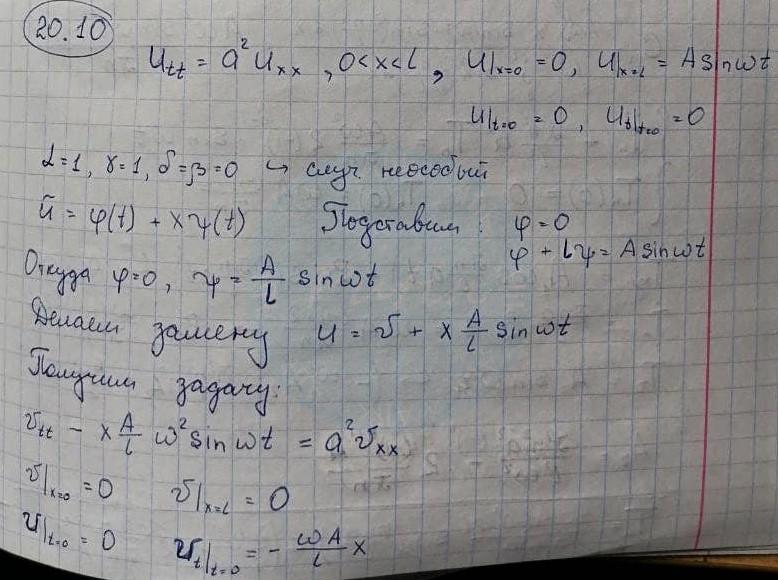 20.10
U_tt = a² U_xx , 0<x<l, U|x=0 = 0, U|x=l = A sin ωt
U|t=0 = 0, U_t|t=0 = 0
α=1, γ=1, δ=β=0 ↪ случ. неособый
ũ = φ(t) + xψ(t) Подставим: φ=0
φ + lψ = A sin ωt
Откуда φ=0, ψ = A/l sin ωt
Делаем замену U = v + x A/l sin ωt
Получим задачу:
v_tt - x A/l ω² sin ωt = a² v_xx
v|x=0 = 0 v|x=l = 0
v|t=0 = 0 v_t|t=0 = - ωA/l x